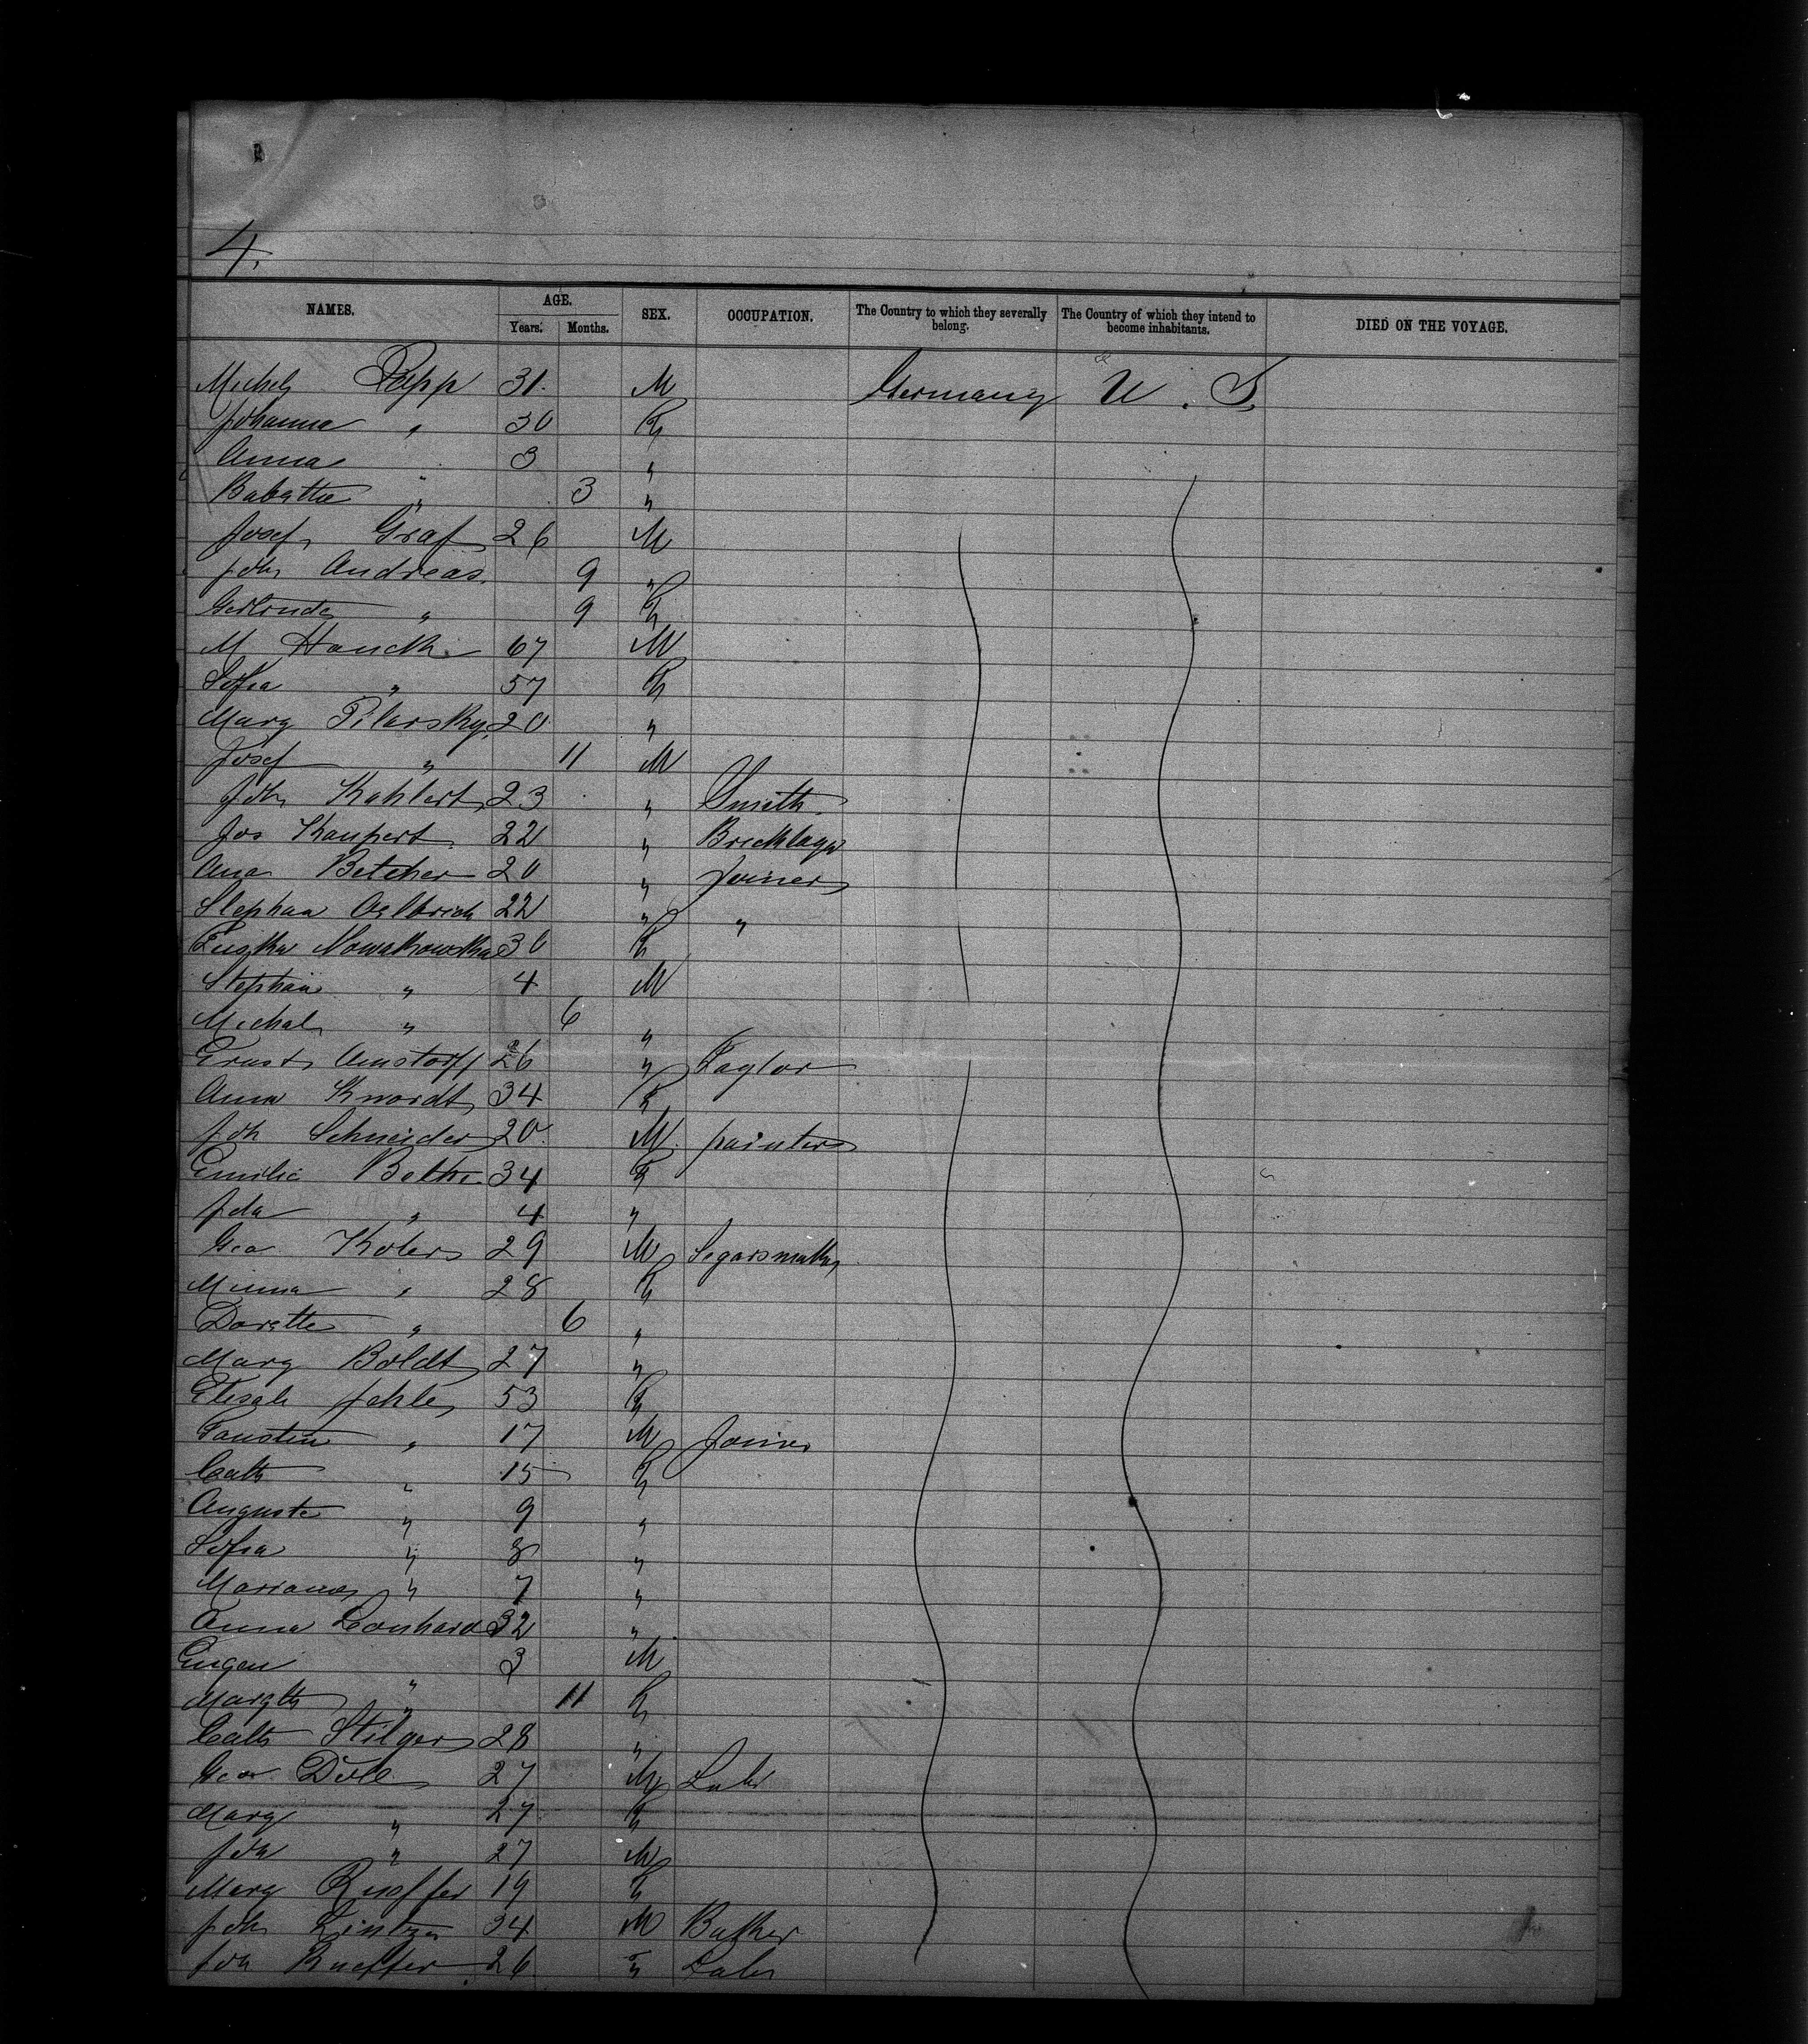 4.
NAMES. AGE. SEX. OCCUPATION. The Country to which they severally belong. The Country of which they intend to become inhabitants. DIED ON THE VOYAGE.
Years. Months.
Papp 31. M Germany U. S.
Johanna " 30
Anna " 3 "
Babette " 3 "
Josef Graf 26 M
Joh Andreas 9 "
" 9
M Hauck 67 M
Sofia " 57
Marg Pilarsky 20 "
Josef " 11 M
Joh Kahlert 23 " Smith
Jos Kaupert 22 " Bricklayer
Betcher 20 " Joiner
Stephan 22 " "
Nowakowska 30
Stephan " 4 M
Michal " 6 "
Ernst Amstorff 26 " Taylor
Anna Knordt 34
Joh Schneider 20 M painter
Emilie Bethe 34
Ida " 4 "
Geo Kolers 29 M Segarsmaker
Minna " 28
Dorette " 6 "
Marg Boldt 27 "
Elisab Jehle 53
Faustin " 17 M Joiner
Cath " 15
Auguste " 9 "
Sofia " 8 "
Marianne " 7 "
Anna Leonhard 32 "
Eugen " 3 M
Margth " 11
Cath Stilger 28 "
Geo 27 M Labr
Marg " 27
Joh " 27 M
Marg 19
Joh 34 M
Joh 26 " Labr